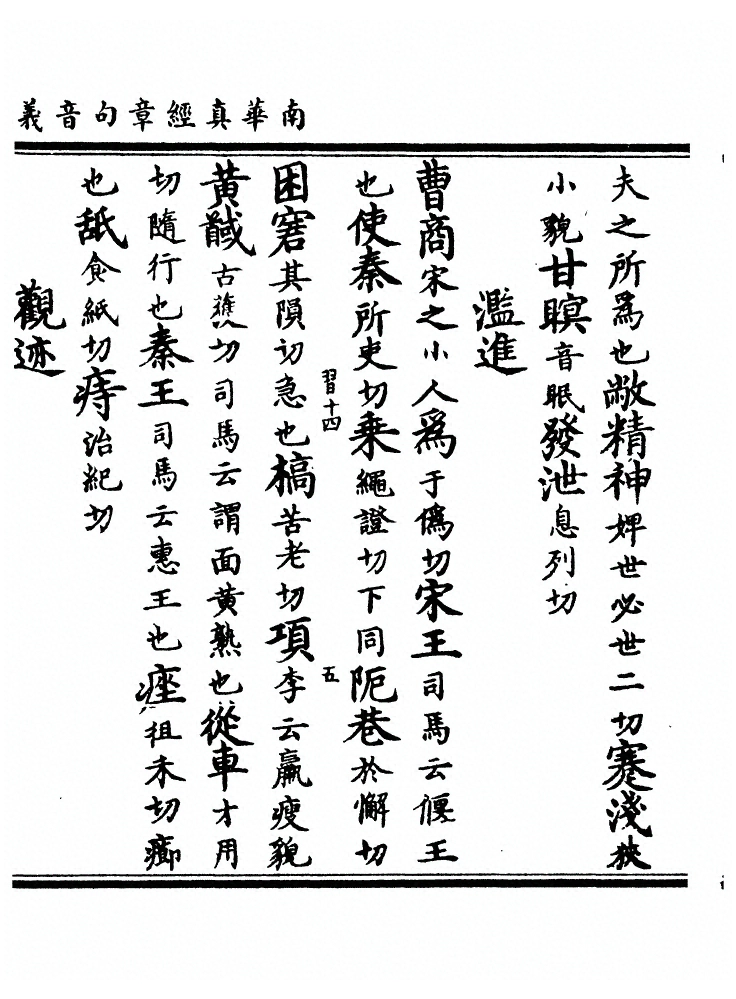 南華真經章句音義
夫之所爲也敝精神婢世必世二切蹇淺狹
小貌甘瞑音眠發泄息列切
濫進
曹商宋之小人爲于僞切宋王司馬云偃王
也使秦所吏切乗繩證切下同阨巷於懈切
習十四
五
困窘其隕切急也槁苦老切項李云羸瘦貌
黃馘古獲切司馬云謂面黃熟也從車才用
切隨行也秦王司馬云惠王也痤徂禾切癤
也舐食紙切痔治紀切
觀迹